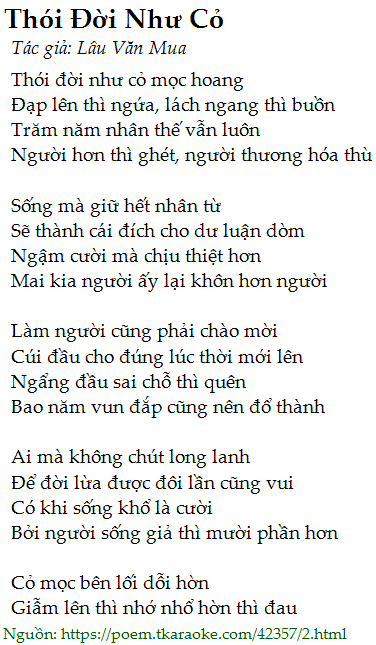 Thói Đời Như Cỏ
Tác giả: Lâu Văn Mua
Thói đời như cỏ mọc hoang
Đạp lên thì ngứa, lách ngang thì buồn
Trăm năm nhân thế vẫn luôn
Người hơn thì ghét, người thương hóa thù
Sống mà giữ hết nhân từ
Sẽ thành cái đích cho dư luận dòm
Ngậm cười mà chịu thiệt hơn
Mai kia người ấy lại khôn hơn người
Làm người cũng phải chào mời
Cúi đầu cho đúng lúc thời mới lên
Ngẩng đầu sai chỗ thì quên
Bao năm vun đắp cũng nên đổ thành
Ai mà không chút long lanh
Để đời lừa được đôi lần cũng vui
Có khi sống khổ là cười
Bởi người sống giả thì mười phần hơn
Cỏ mọc bên lối dỗi hờn
Giẫm lên thì nhớ nhổ hờn thì đau
Nguồn: https://poem.tkaraoke.com/42357/2.html